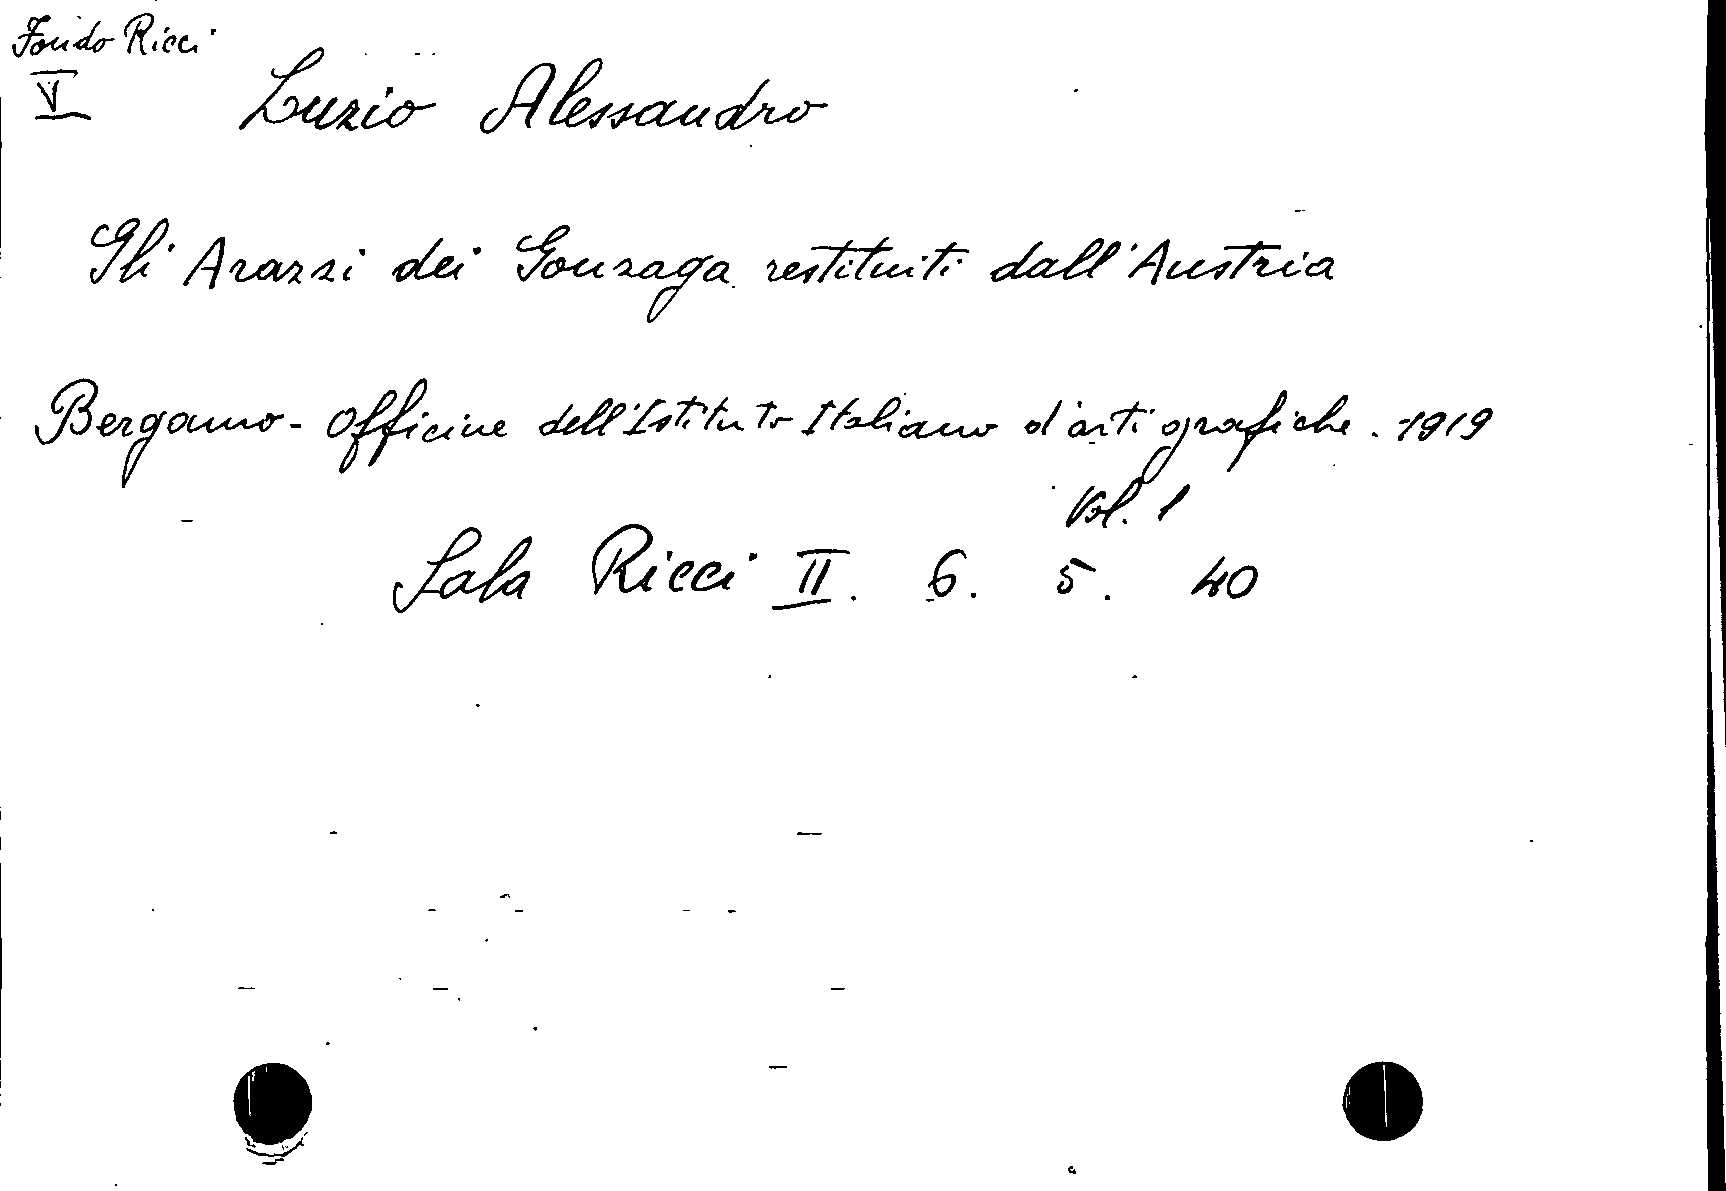 Fondo Ricci
V
Luzio Alessandro
Gli Arazzi dei Gonzaga restituiti dall'Austria
Bergamo - Officine dell'Istituto Italiano d'arti grafiche. 1919
Vol. 1
Sala Ricci II. 6. 5. 40